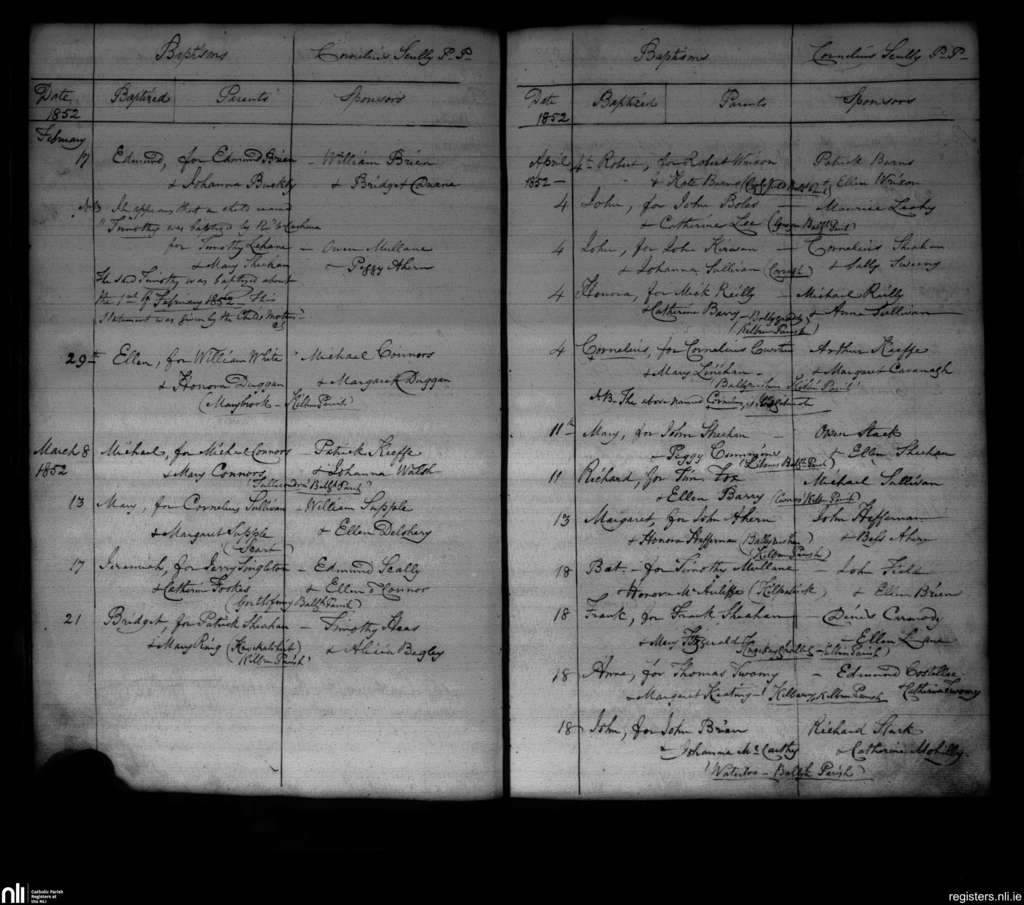 Baptisms Cornelius Scully P. P.
Date Baptized Parents Sponsors
1852
February
17 Edmund, for Edmund Brien – William Brien
& Johanna Buckly & Bridget Duane
NB It appears that a child named
"Timothy was baptized by Revd
for Timothy Lehane – Owen Mullane
& Mary Sheehan – Peggy Ahern
The said Timothy was baptized about
the 1st of February 1852. This
statement was given by the Child's mother
29th Ellen, for William White " Michael Connors
& Honora Duggan & Margaret Duggan
(Marybrook – Kilbrin Parish)
March 8 Michael, for Michael Connors – Patrick Keeffe
1852 & Mary Connors & Johanna Walsh
Ballh Parish)
13 Mary, for Cornelius Sullivan – William Supple
& Margaret Supple & Ellen Delohery
(Scart)
17 Jeremiah, for Jerry Singleton – Edmund Scally
& Catherine & Ellen O'Connor
Ballh Parish)
21 Bridget, for Patrick Sheahan – Timothy Haas
& Mary Ring & Alicia Bagley
Kilbrin Parish)
Baptisms Cornelius Scully P. P.
Date Baptized Parents Sponsors
1852
April 4th Robert, for Robert Wrixon Patrick Burns
1852 – & Kate Burns & Ellen Wrixon
4 John, for John Boles – Maurice Leahy
& Catherine Lee Ballh Parish)
4 John, for John Kirwan – Cornelius Sheahan
& Johanna Sullivan & Sally Sweeny
4 Honora, for Mick Reilly – Michael Reilly
& Catherine Barry – & Anne Sullivan
(Kilbrin Parish)
4 Cornelius, for Cornelius Curtin Arthur Keeffe
& Mary Linehan – & Margaret Cavanagh
Parish)
NB. The above named Cornelius is
11th Mary, for John Sheehan – Owen Stack
& Peggy & Ellen Sheehan
Ballh Parish)
11 Richard, for Tim Fox Michael Sullivan
& Ellen Barry Kilbrin Parish)
13 Margaret, for John Ahern John Heffernan
& Honora Heffernan & Bess Ahern
(Kilbrin Parish)
18 Bat. – for Timothy Mullane – John Field
Honora McAuliffe (Kilpatrick) & Ellen Brien
18 Frank, for Frank Sheahan – Denis Carmody
& Mary Fitzgerald – Ellen
Kilbrin Parish)
18 Anne, for Thomas Twomy – Edmund Costelloe
& Margaret Keating – Kilbrin Parish Catherine Twomy
18 John, for John Brien Richard Stack
& Johanna McCarthy & Catherine
(Waterloo – Ballh Parish)
nli Catholic Parish
Registers at
the NLI
registers.nli.ie